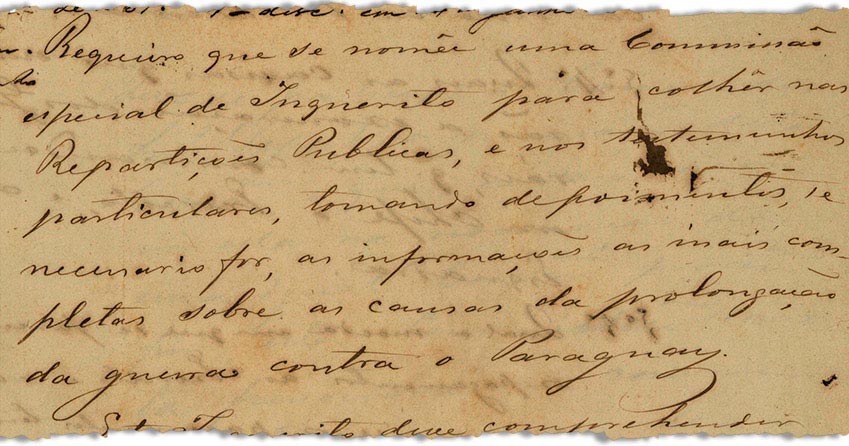 Requeiro que se nomêe uma Commissão
especial de Inquerito para colhêr nas
Repartições Publicas, e nos testemunhos
particulares, tomando depoimentos, se
necessario for, as informações as mais com-
pletas sobre as causas da prolongação
da guerra contra o Paraguay.
Este Inquerito deve comprehender